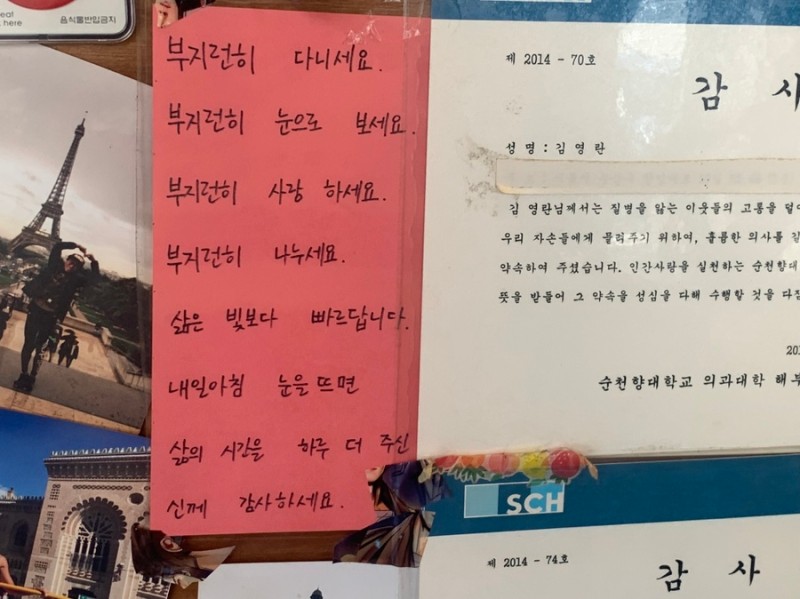 here
음식물반입금지
부지런히 다니세요.
부지런히 눈으로 보세요.
부지런히 사랑 하세요.
부지런히 나누세요.
삶은 빛보다 빠르답니다.
내일아침 눈을 뜨면
삶의 시간을 하루 더 주신
신께 감사하세요.
제 2014 - 70호
감 사
성 명 : 김 영 란
김 영란님께서는 질병을 앓는 이웃들의 고통을 덜어
우리 자손들에게 물려주기 위하여, 훌륭한 의사를 길
약속하여 주셨습니다. 인간사랑을 실천하는 순천향대
뜻을 받들어 그 약속을 성심을 다해 수행할 것을 다짐
순천향대학교 의과대학 해부
SCH
제 2014 - 74호
감 사